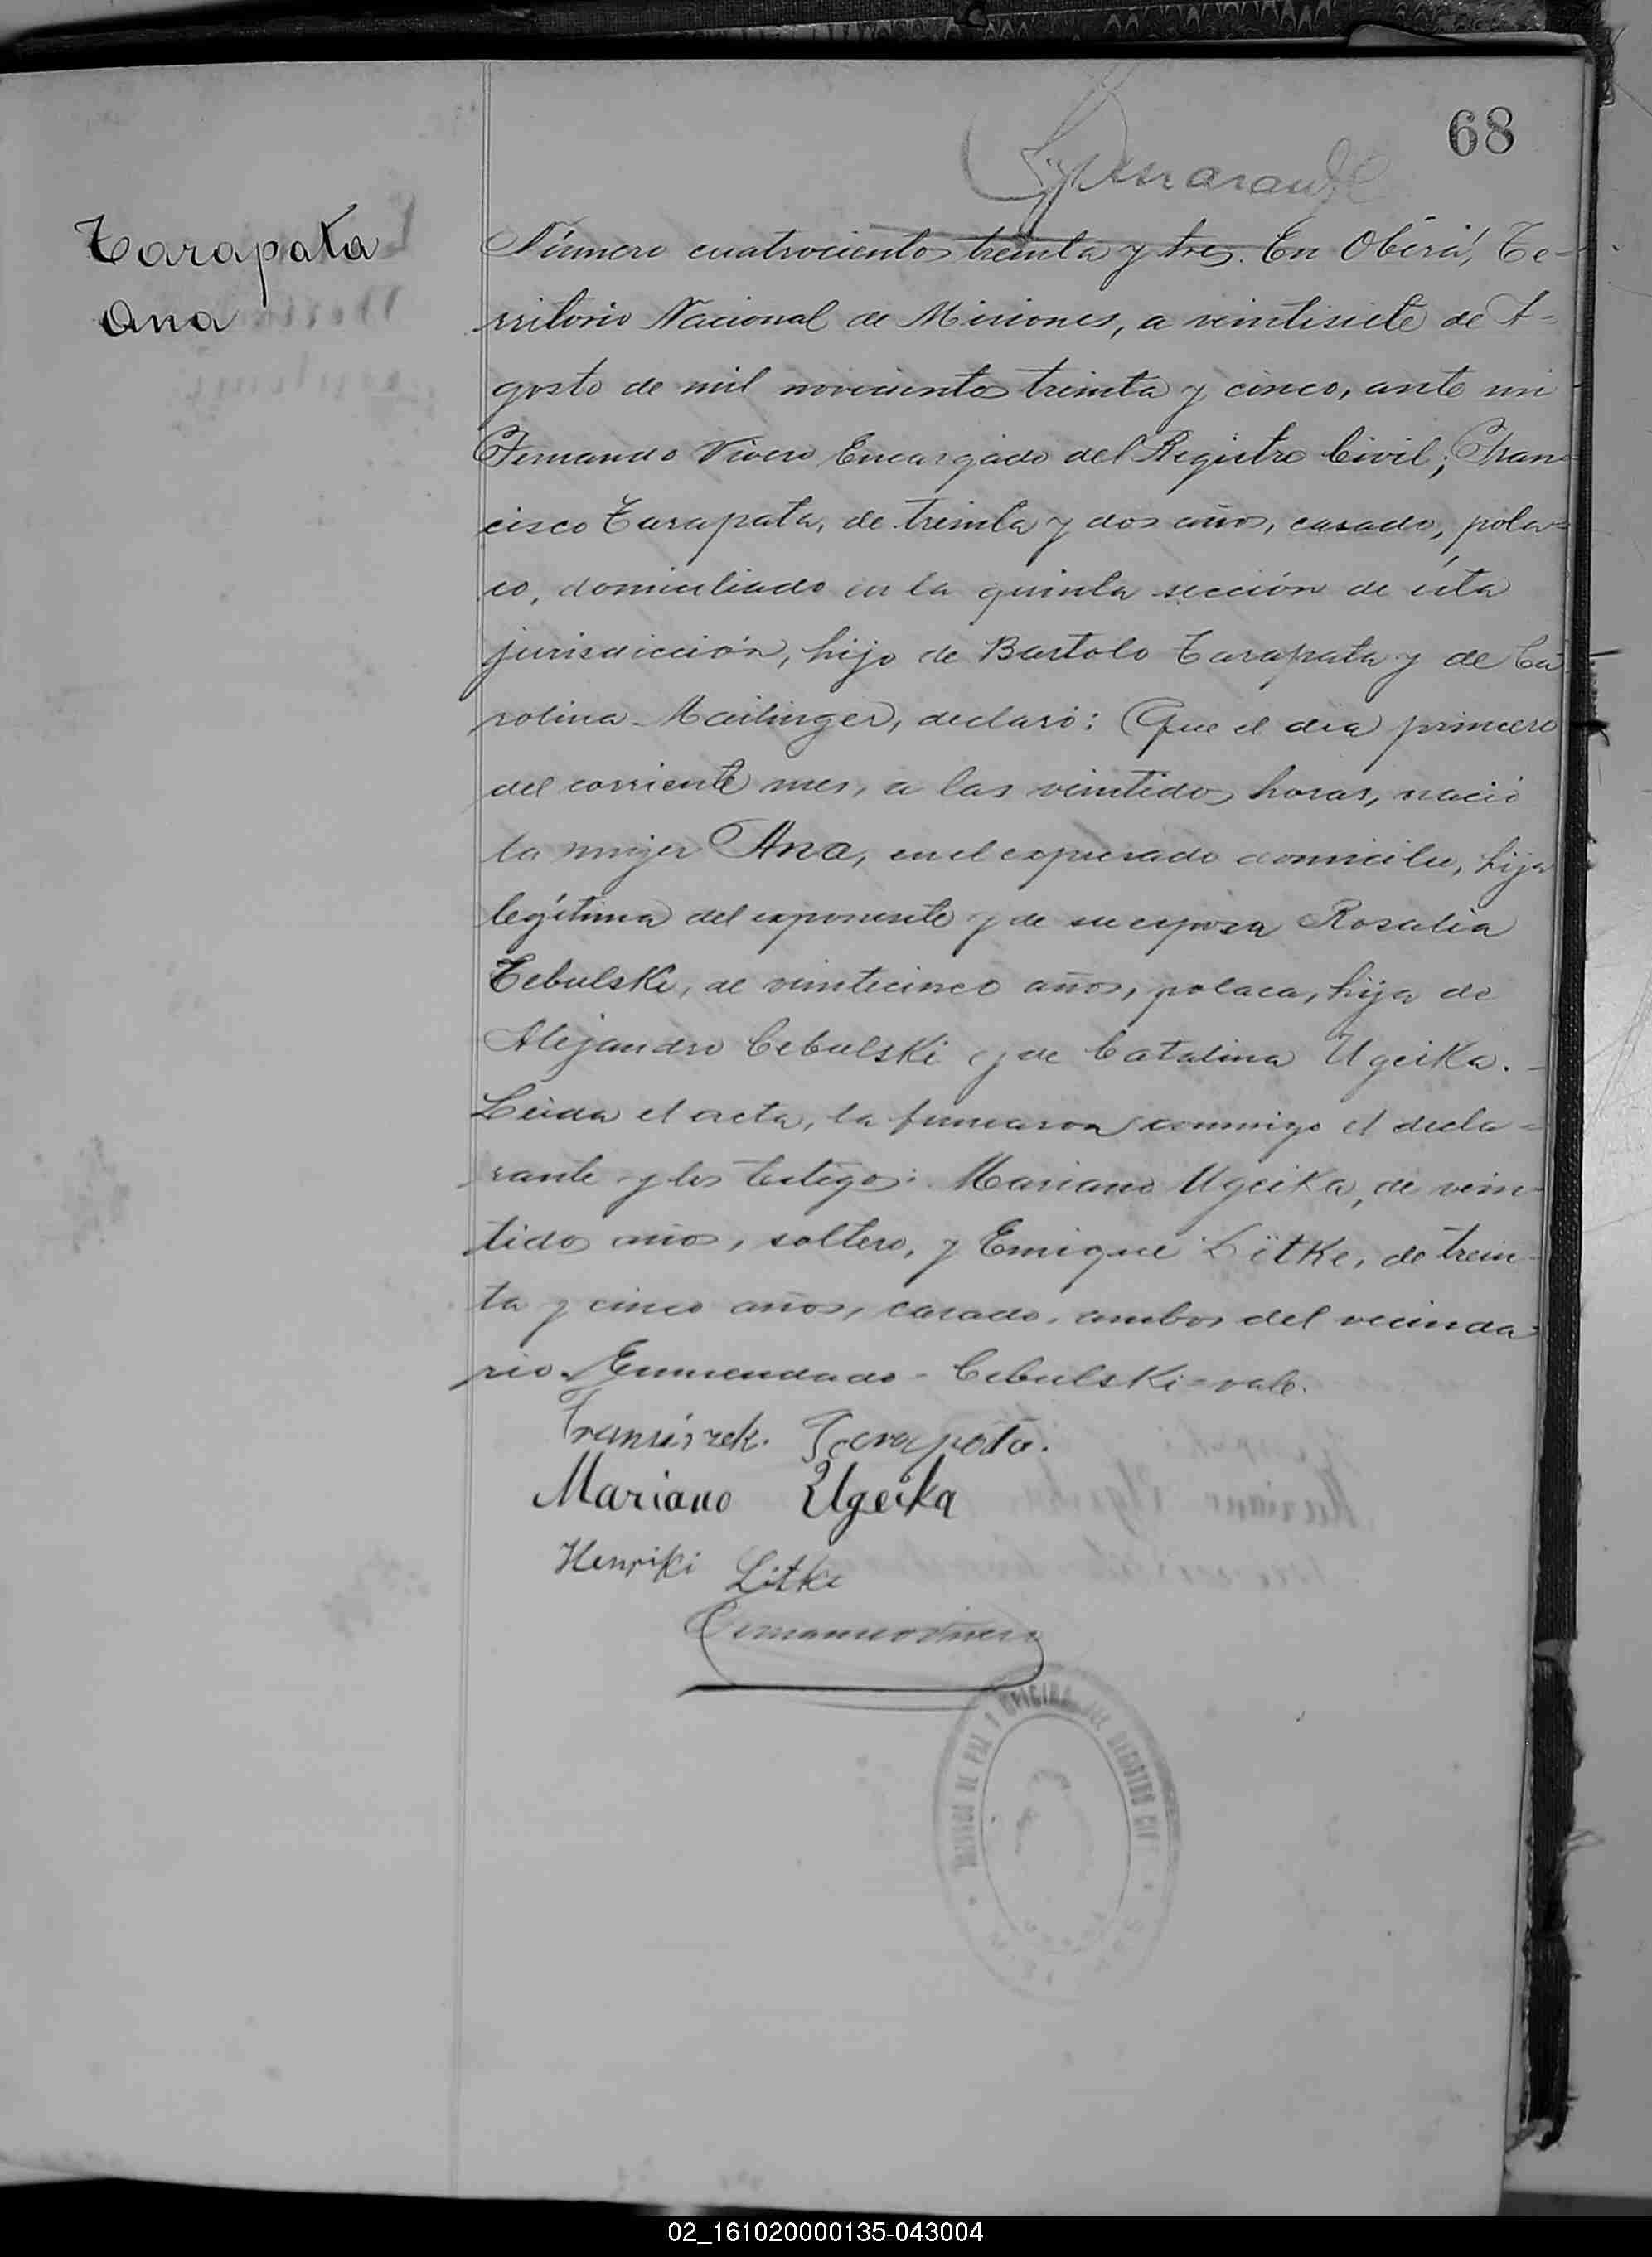 68
Tarapata
Ana
Número cuatrocientos treinta y tres. En Oberá, Te-
rritorio Nacional de Misiones, a veintisiete de A-
gosto de mil novecientos treinta y cinco, ante mi
Fernando Vivero Encargado del Registro Civil; Fran-
cisco Tarapata, de treinta y dos años, casado, pola-
co, domiciliado en la quinta sección de ésta
jurisdicción, hijo de Bartolo Tarapata y de Ca-
rolina Mailinger, declaró: Que el dia primero
del corriente mes, a las veintidos horas, nació
la mujer Ana, en el expresado domicilio, hija
legítima del exponente y de su esposa Rosalia
Cebulski, de veinticinco años, polaca, hija de
Alejandro Cebulski y de Catalina Ugeika.-
Leida el acta, la firmaron conmigo el decla-
rante y los testigos: Mariano Ugeika, de vein-
tidos años, soltero, y Enrique Litke, de trein-
ta y cinco años, casado, ambos del vecinda-
rio. Enmendado - Cebulski = vale.
Fransiszek Tarapata.
Mariano Ugeika
Henriki Litke
Fernando Vivero
JUZGADO DE PAZ Y OFICINA DEL REGISTRO CIVIL
02_161020000135-043004